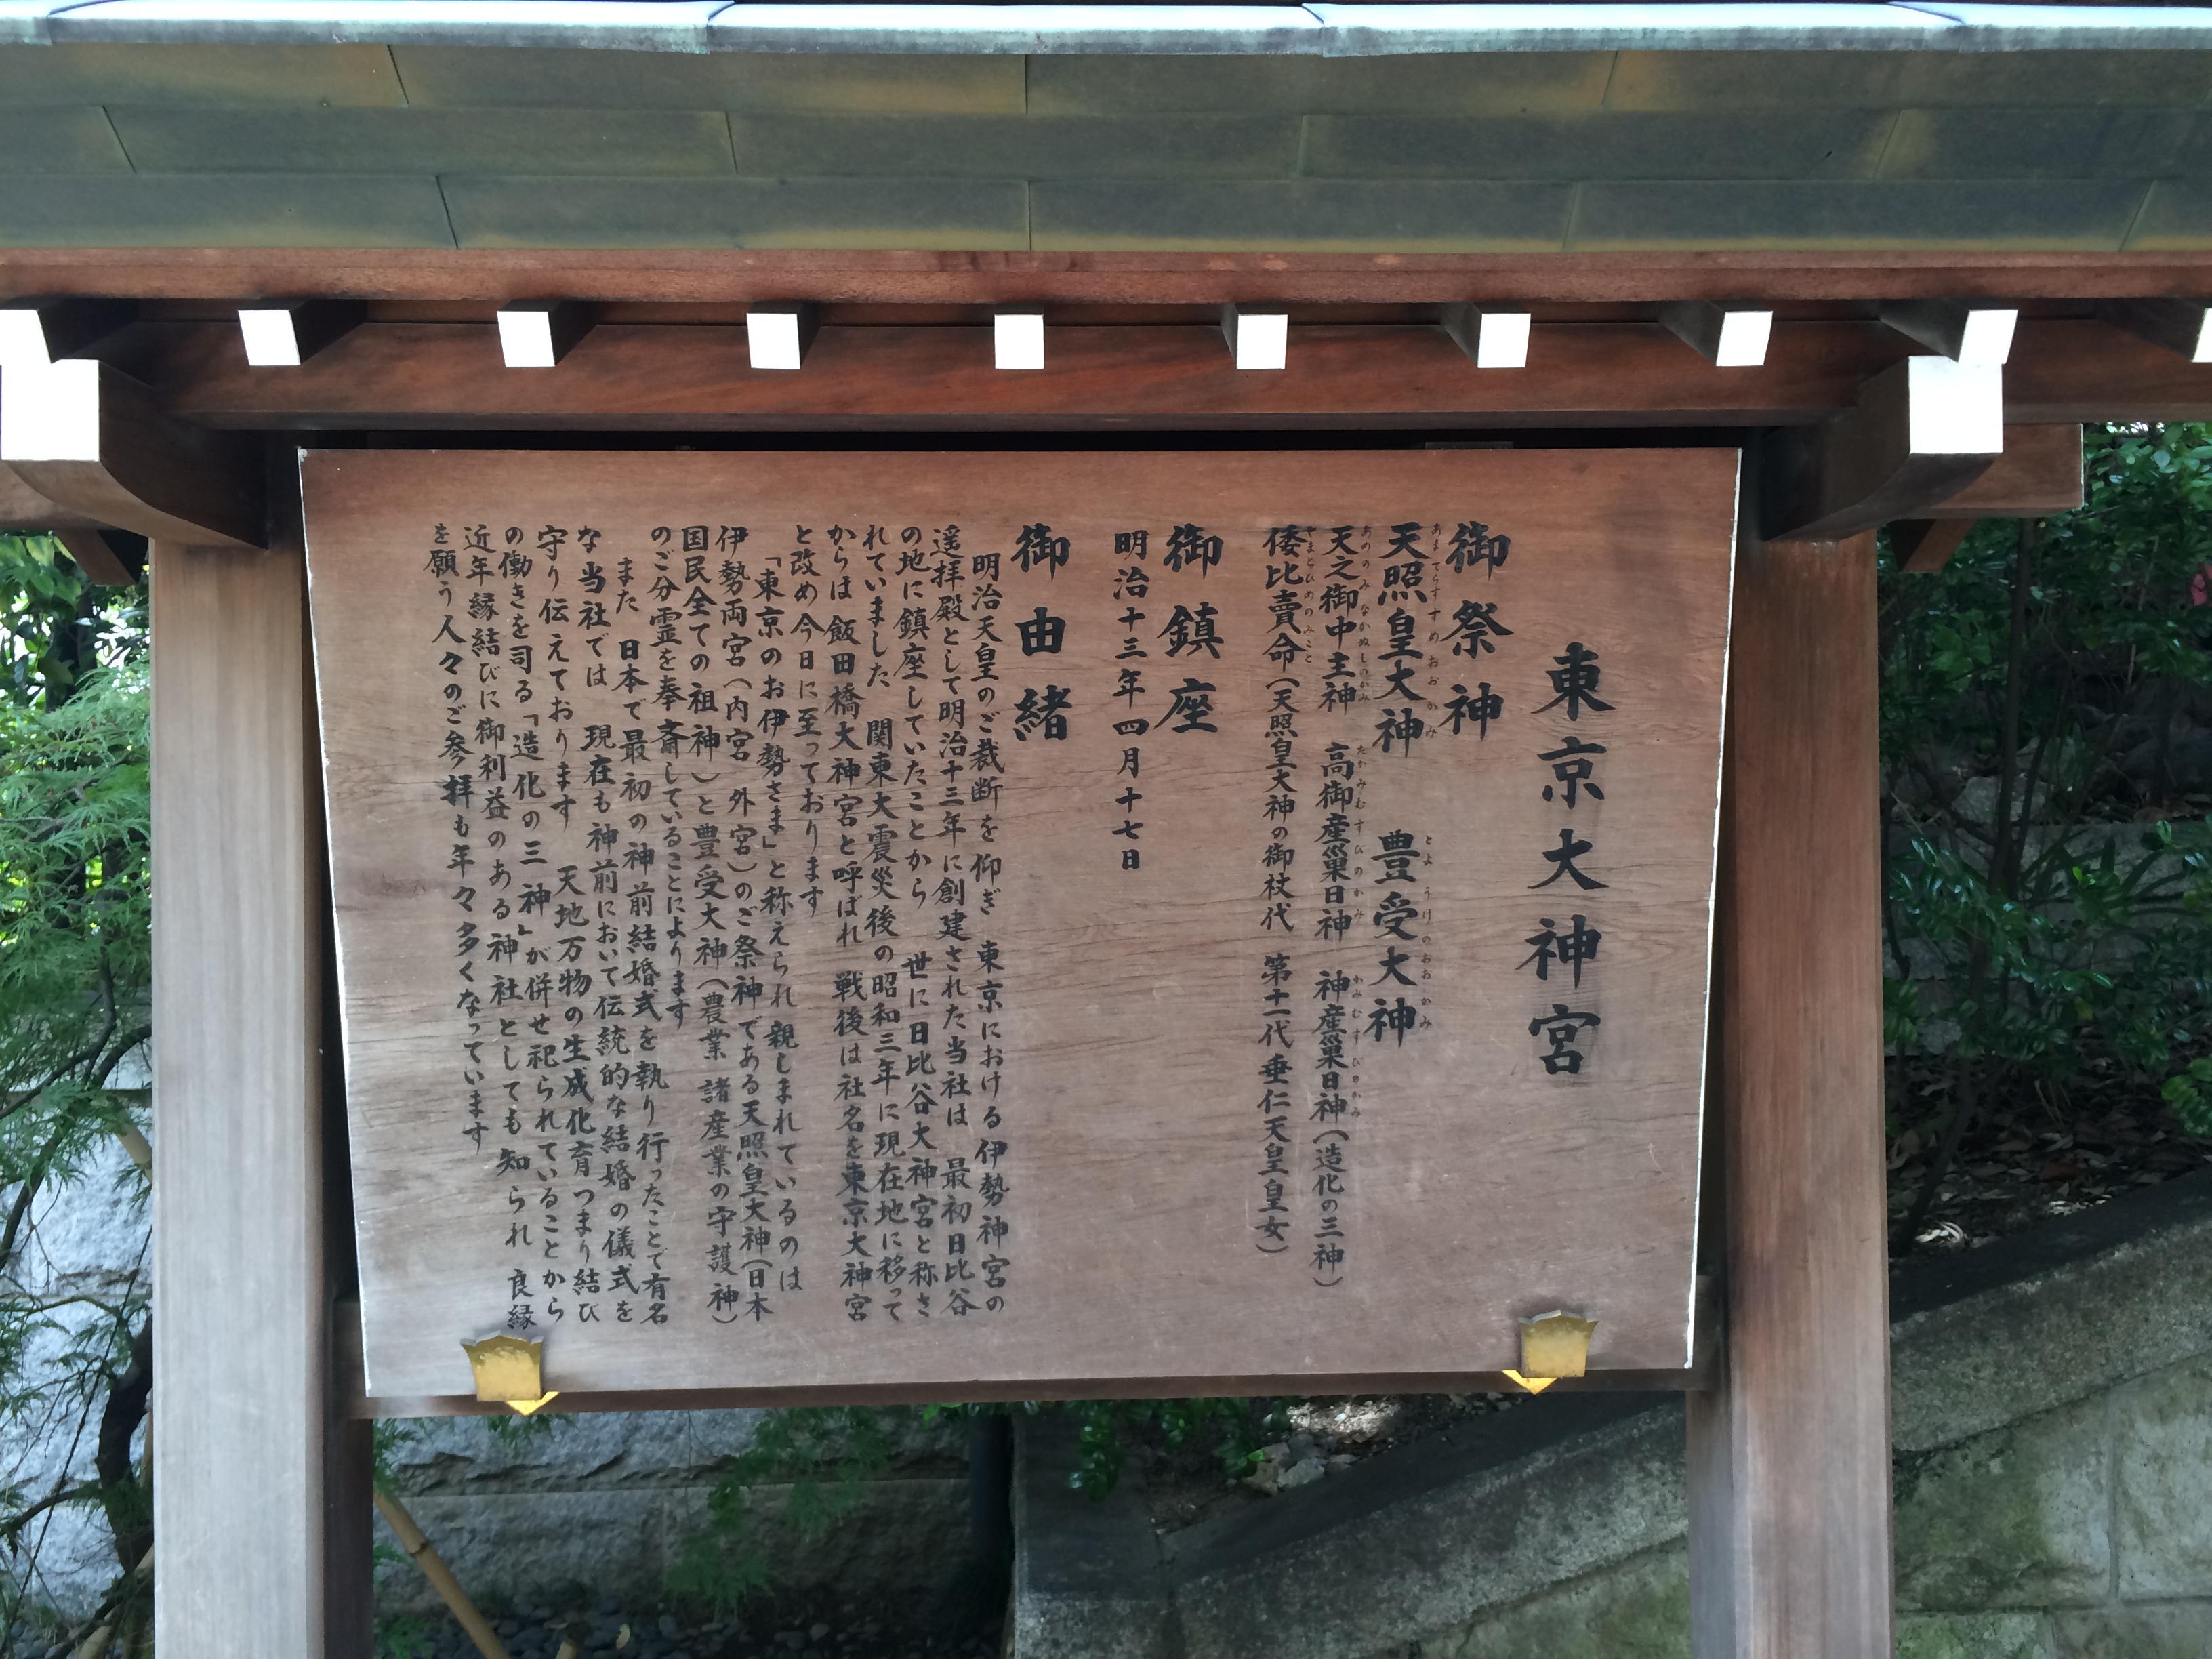 東京大神宮
御祭神
天照皇大神 豊受大神
あまてらすすめおおかみ とようけのおおかみ
天之御中主神 高御産巣日神 神産巣日神(造化の三神)
あめのみなかぬしのかみ たかみむすびのかみ かみむすびのかみ
倭比賣命(天照皇大神の御杖代 第十一代 垂仁天皇皇女)
やまとひめのみこと
御鎮座
明治十三年四月十七日
御由緒
明治天皇のご裁断を仰ぎ 東京における伊勢神宮の
遥拝殿として明治十三年に創建された当社は 最初日比谷
の地に鎮座していたことから 世に日比谷大神宮と称さ
れていました 関東大震災後の昭和三年に現在地に移って
からは 飯田橋大神宮と呼ばれ 戦後は社名を東京大神宮
と改め今日に至っております
「東京のお伊勢さま」と称えられ 親しまれているのは
伊勢両宮(内宮 外宮)のご祭神である天照皇大神(日本
国民全ての祖神)と豊受大神(農業 諸産業の守護神)
のご分霊を奉斎していることによります
また 日本で最初の神前結婚式を執り行ったことで有名
な当社では 現在も神前において伝統的な結婚の儀式を
守り伝えております 天地万物の生成化育つまり結び
の働きを司る「造化の三神」が併せ祀られていることから
近年縁結びに御利益のある神社としても知られ 良縁
を願う人々のご参拝も年々多くなっています